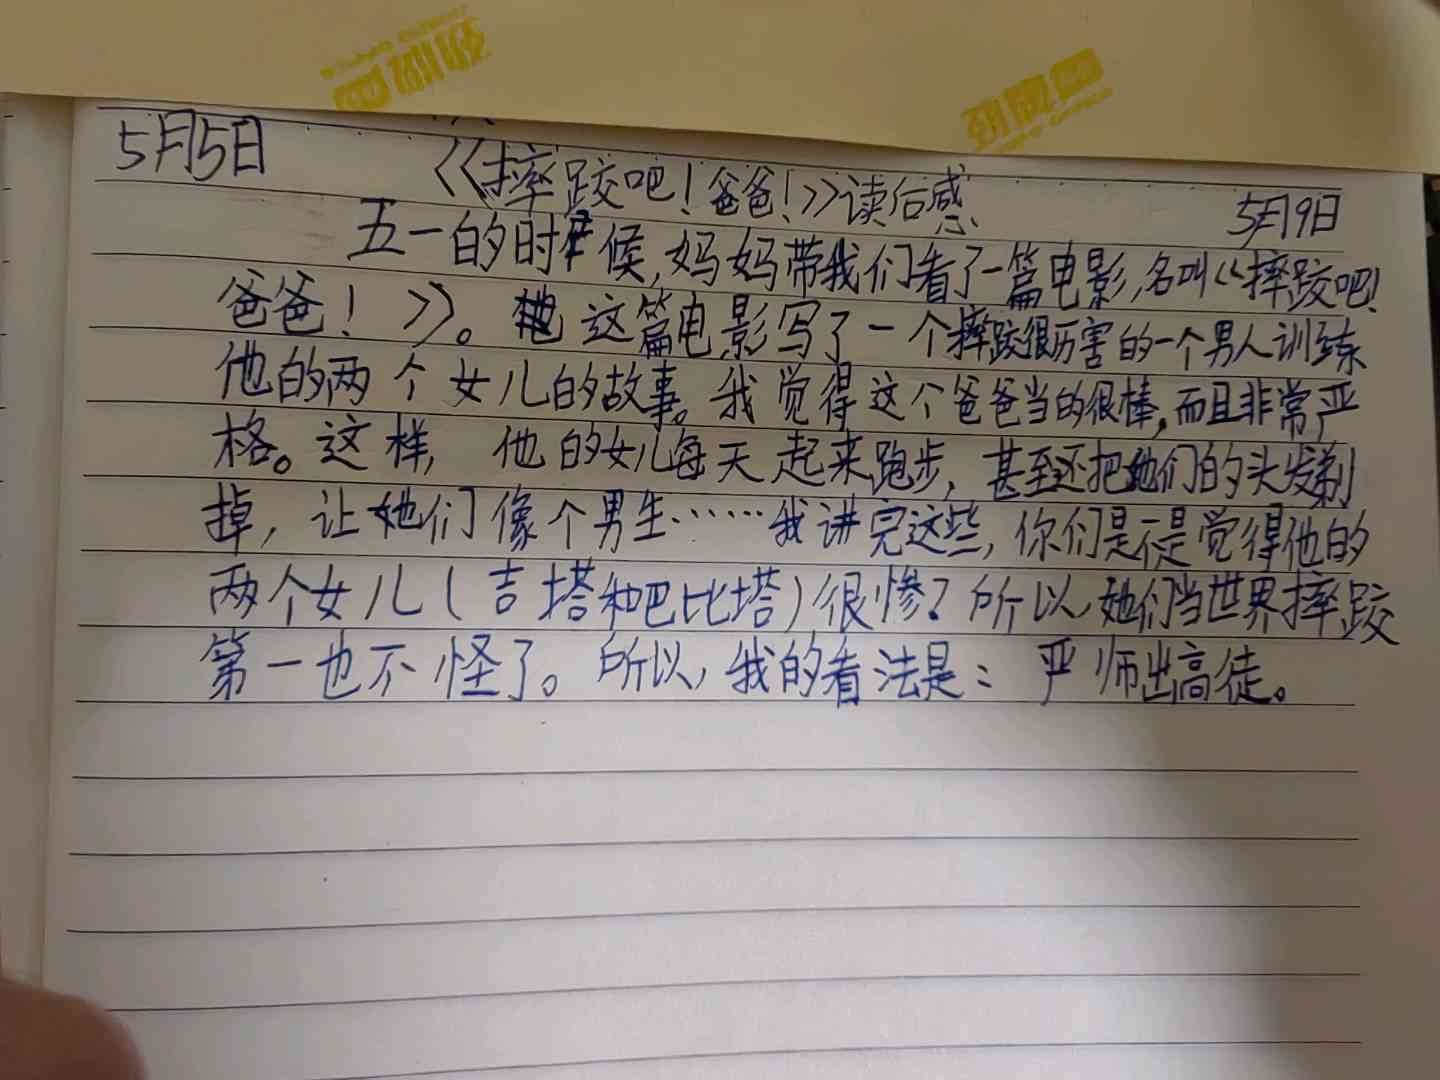 5月5日
《摔跤吧!爸爸!》读后感
5月9日
五一的时候,妈妈带我们看了一篇电影,名叫《摔跤吧!
爸爸!》。这篇电影写了一个摔跤很厉害的一个男人训练
他的两个女儿的故事。我觉得这个爸爸当的很棒,而且非常严
格。这样,他的女儿每天起来跑步,甚至还把她们的头发剃
掉,让她们像个男生……我讲完这些,你们是不是觉得他的
两个女儿(吉塔和巴比塔)很惨?所以,她们当世界摔跤
第一也不怪了。所以,我的看法是:严师出高徒。